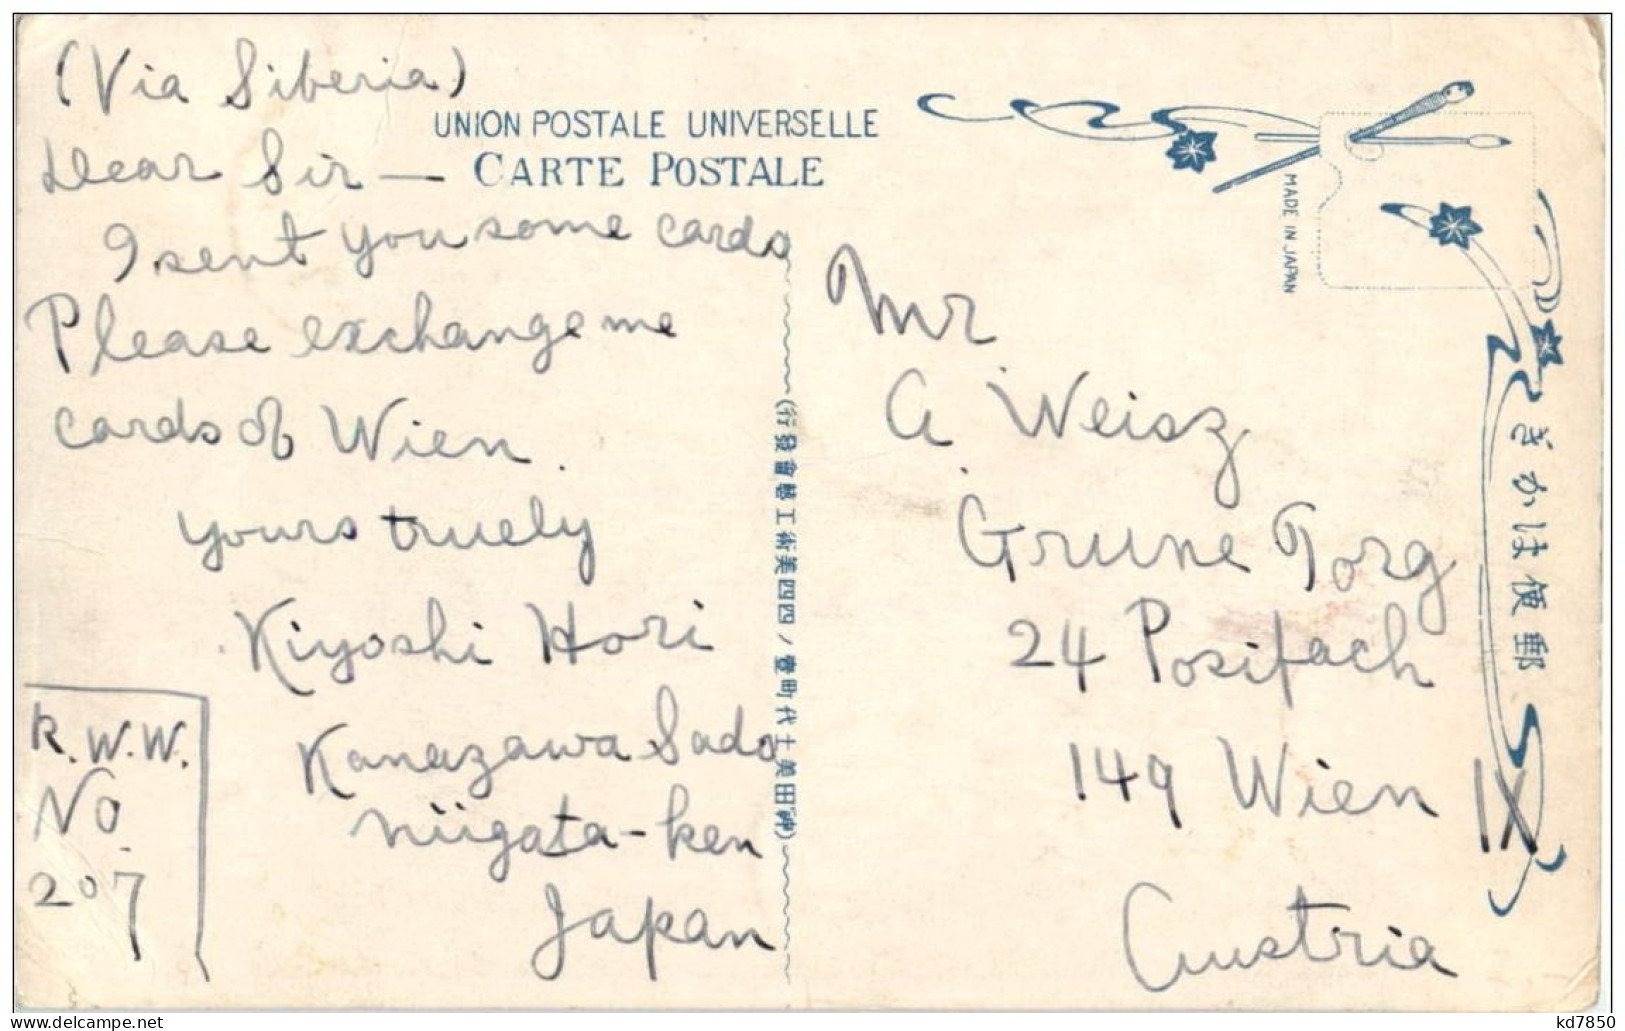 (Via Siberia)
UNION POSTALE UNIVERSELLE
CARTE POSTALE
Dear Sir —
I sent you some cards
Please exchange me
cards of Wien.
yours truely
Kiyoshi Hori
Kanazawa Sado
Niigata-ken
Japan
R.W.W.
No.
207
(行發會藝工術美四四ノ壹町代土美田神)
MADE IN JAPAN
Mr
A. Weisz
Grune Torg
24 Posifach
149 Wien
Austria
IX
ぎかは便郵
kd7850